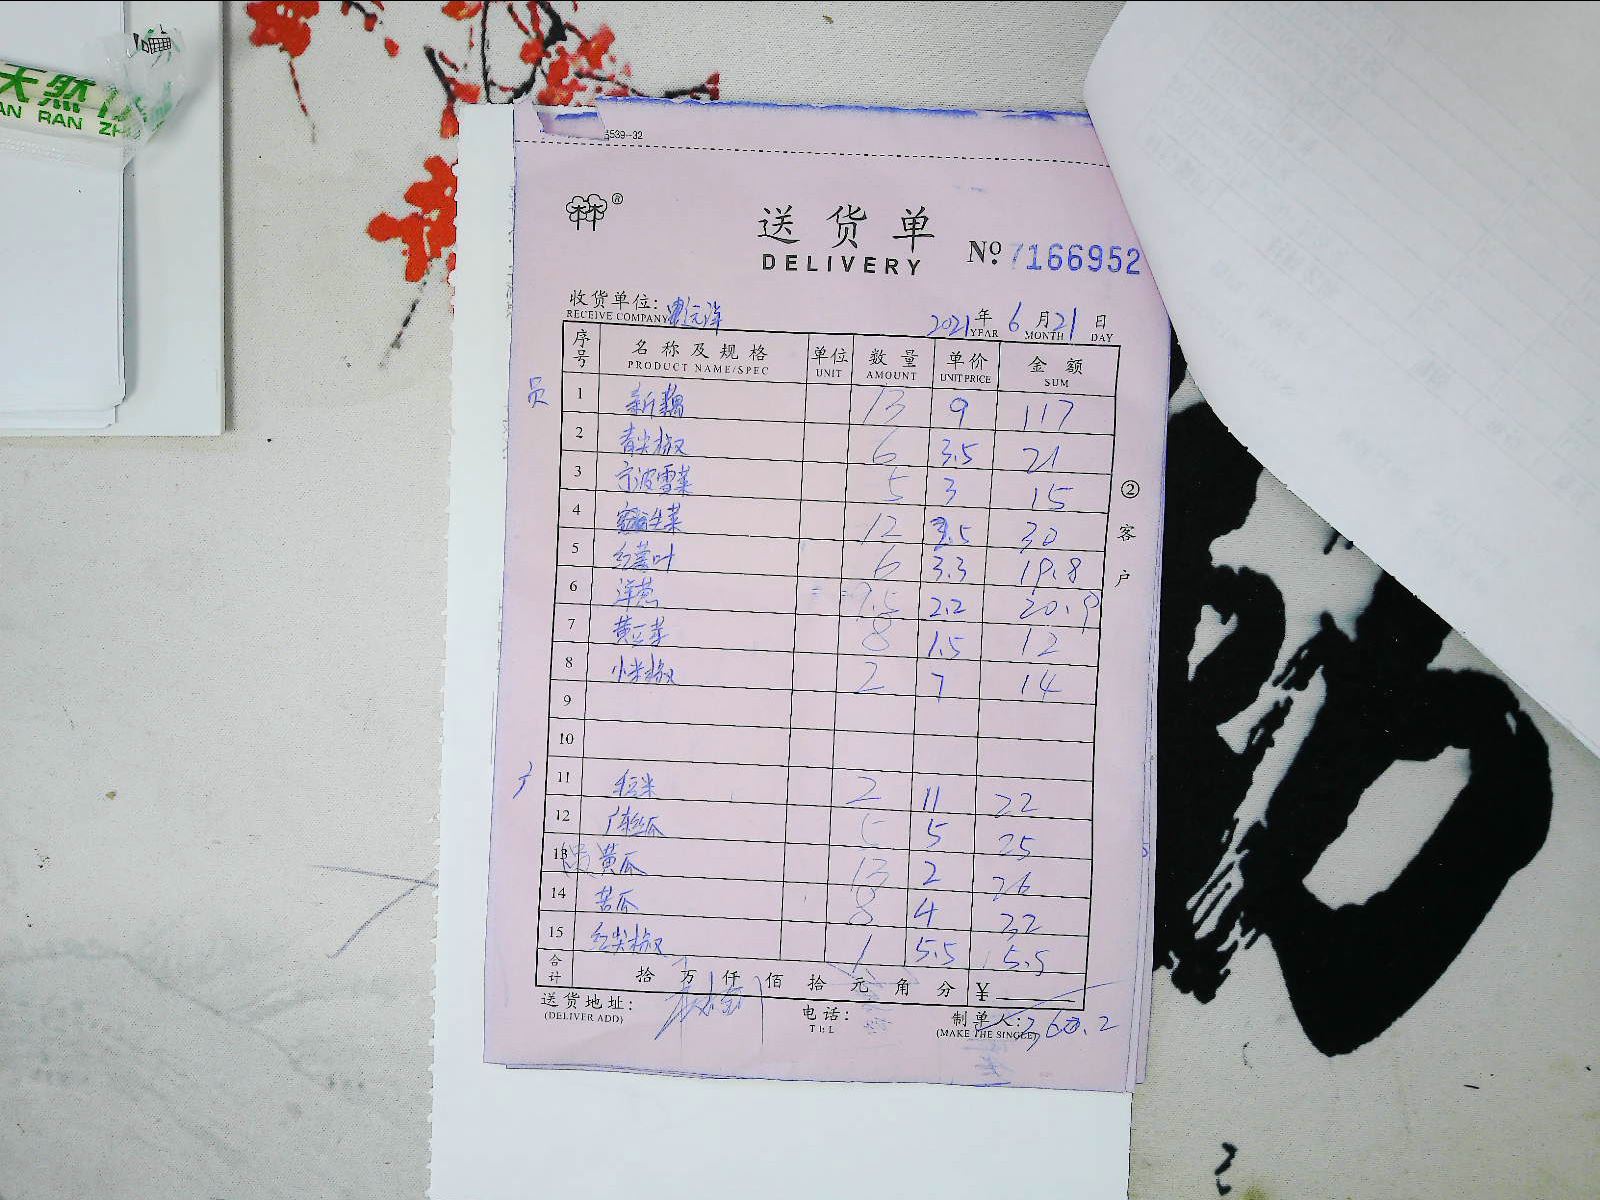 天然竹
AN RAN ZH
5539-32
送货单
DELIVERY
№. 7166952
收货单位:
RECEIVE COMPANY
2021年 6月 21日
YEAR MONTH DAY
序号 名称及规格 单位 数量 单价 金额
PRODUCT NAME/SPEC UNIT AMOUNT UNIT PRICE SUM
员
1 新藕 13 9 117
2 青尖椒 6 3.5 21
3 宁波雪菜 5 3 15
4 生菜 12 2.5 30
5 红薯叶 6 3.3 19.8
6 洋葱 9.5 2.2 20.9
7 黄豆芽 8 1.5 12
8 小米椒 2 7 14
9
10
11 粒米 2 11 22
12 丝瓜 5 5 25
13 黄瓜 13 2 26
14 苦瓜 8 4 32
15 红尖椒 1 5.5 5.5
②客户
合计 拾 万 仟 佰 拾 元 角 分 ¥
送货地址:
(DELIVER ADD)
电话:
TEL
制单人:
(MAKE THE SINGLE)
360.2